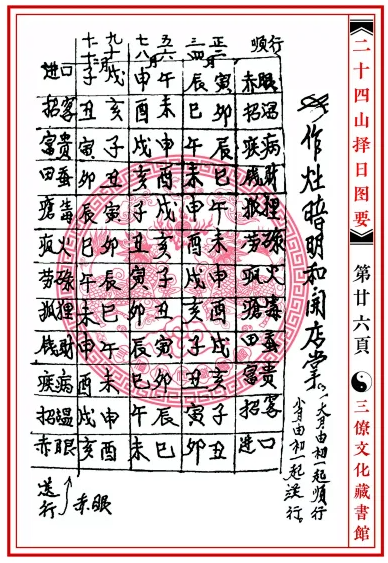 二十四山择日图要
第廿六頁
三僚文化藏書館
作灶暗明和開店堂
一大月由初一起順行
小月由初一起逆行
順行 赤眼 招瘟 疾病 錢財 狐狸 劳碌 疯火 瘡毒 田蚕 富贵 招客 進口
正二 寅 卯 辰 巳 午 未 申 酉 戌 亥 子 丑
三四 辰 巳 午 未 申 酉 戌 亥 子 丑 寅 卯
五六 午 未 申 酉 戌 亥 子 丑 寅 卯 辰 巳
七八月 申 酉 戌 亥 子 丑 寅 卯 辰 巳 午 未
九十 戌 亥 子 丑 寅 卯 辰 巳 午 未 申 酉
十一十二月 子 丑 寅 卯 辰 巳 午 未 申 酉 戌 亥
進口 招客 富贵 田蚕 瘡毒 疯火 劳碌 狐狸 錢財 疾病 招瘟 赤眼
逆行
赤眼